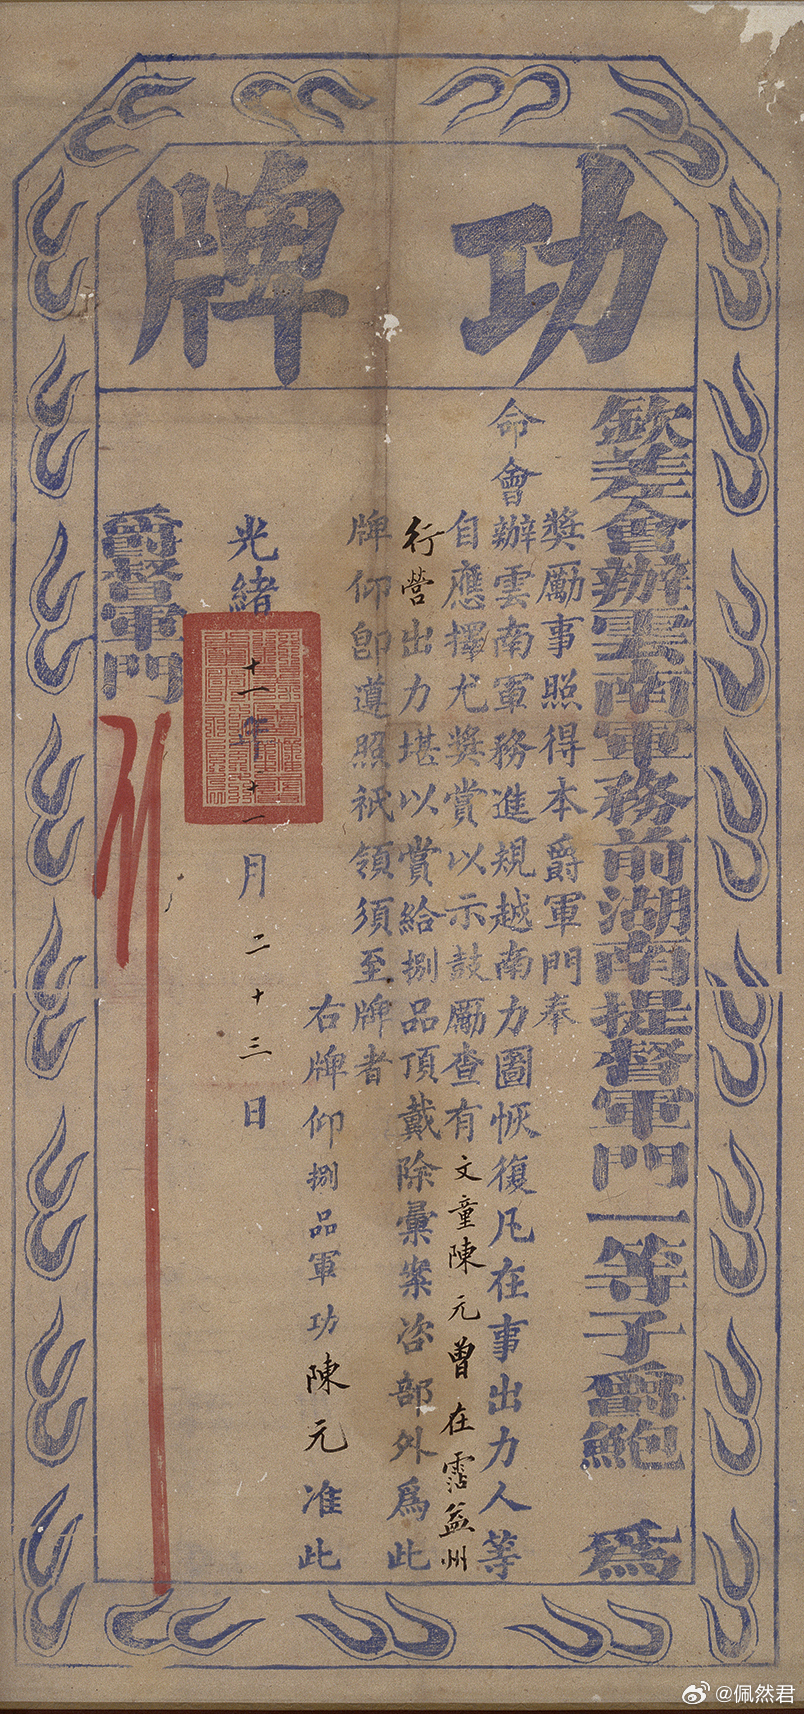 功牌
欽差會辦雲南軍務前湖南提督軍門一等子爵鮑 爲
獎勵事照得本爵軍門奉
命會辦雲南軍務進規越南力圖恢復凡在事出力人等
自應擇尤獎賞以示鼓勵查有文童陳元曾在霑益州
行營出力堪以賞給捌品頂戴除彙案咨部外爲此
牌仰卽遵照祇領須至牌者
右牌仰捌品軍功陳元准此
光緒十一年十一月二十三日
爵督軍門
@佩然君